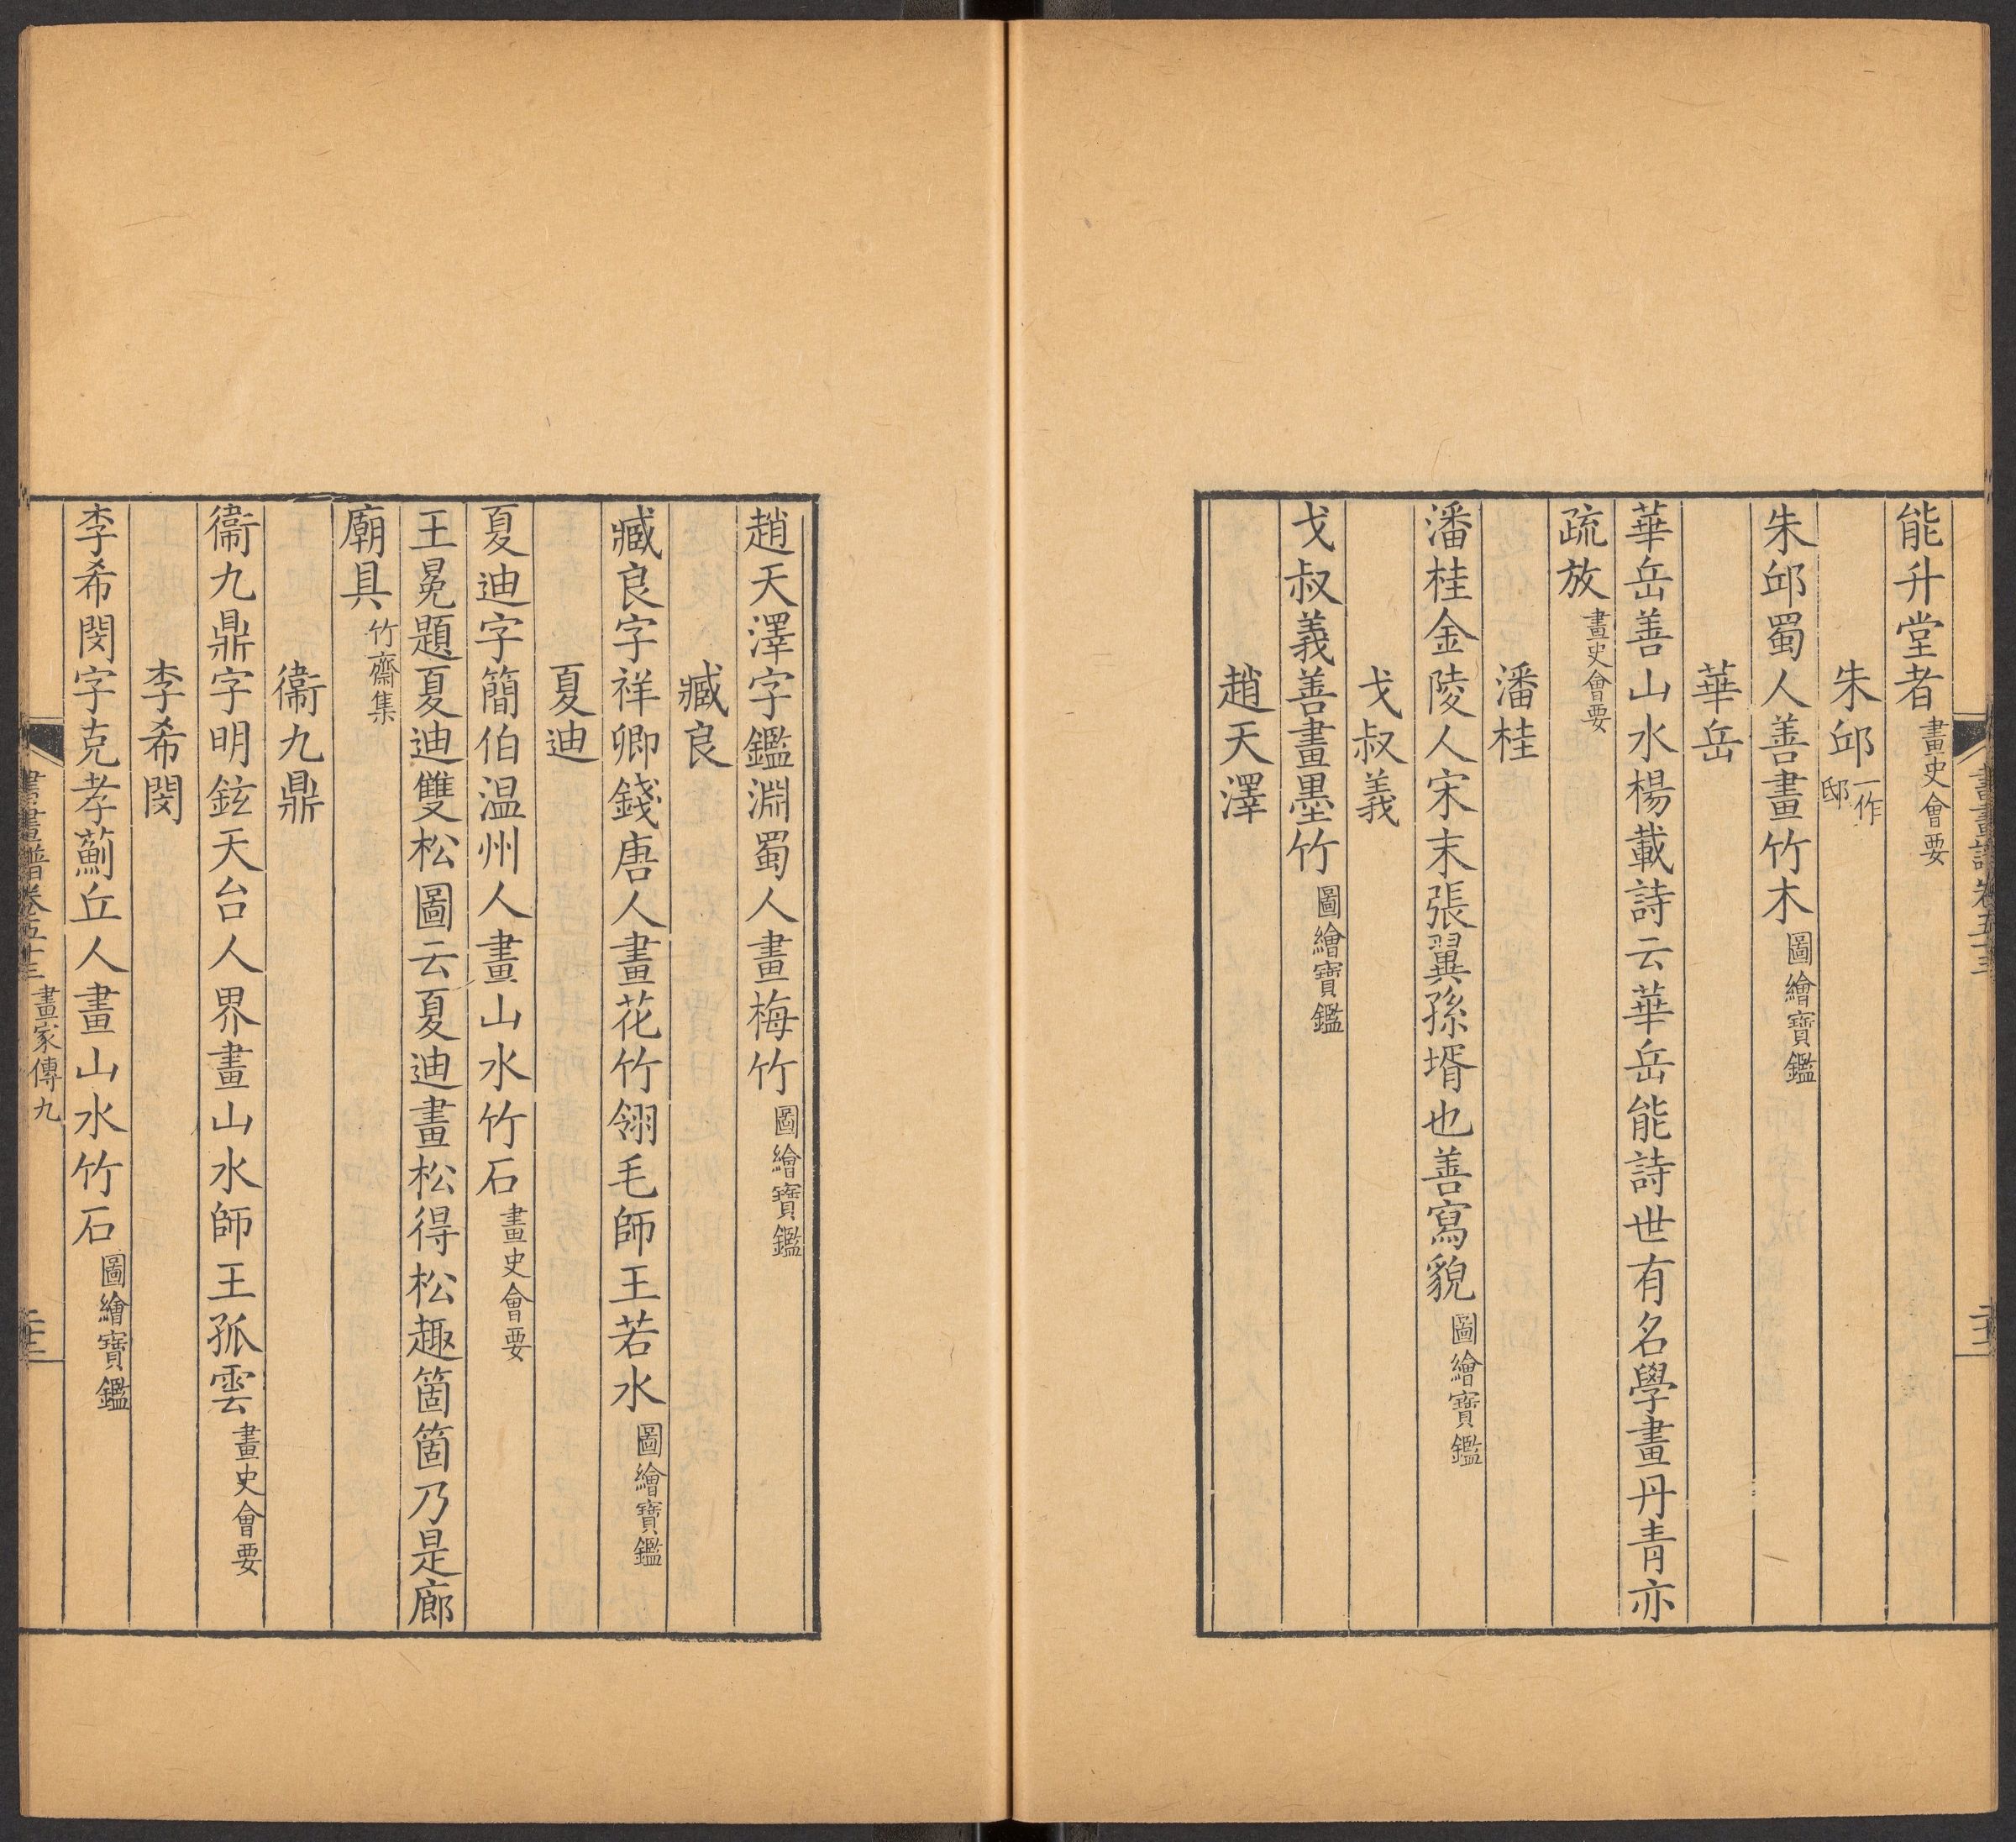 能升堂者畫史會要
朱邱一作邸
朱邱蜀人善畫竹木圖繪寶鑑
華岳
華岳善山水楊載詩云華岳能詩世有名學畫丹青亦
疏放畫史會要
潘桂
潘桂金陵人宋末張翼孫壻也善寫貌圖繪寶鑑
戈叔義
戈叔義善畫墨竹圖繪寶鑑
趙天澤
趙天澤字鑑淵蜀人畫梅竹圖繪寶鑑
臧良
臧良字祥卿錢唐人畫花竹翎毛師王若水圖繪寶鑑
夏迪
夏迪字簡伯温州人畫山水竹石畫史會要
王冕題夏迪雙松圖云夏迪畫松得松趣箇箇乃是廊
廟具竹齋集
衞九鼎
衞九鼎字明鉉天台人界畫山水師王孤雲畫史會要
李希閔
李希閔字克孝薊丘人畫山水竹石圖繪寶鑑
書畫譜卷五十三 畫家傳九